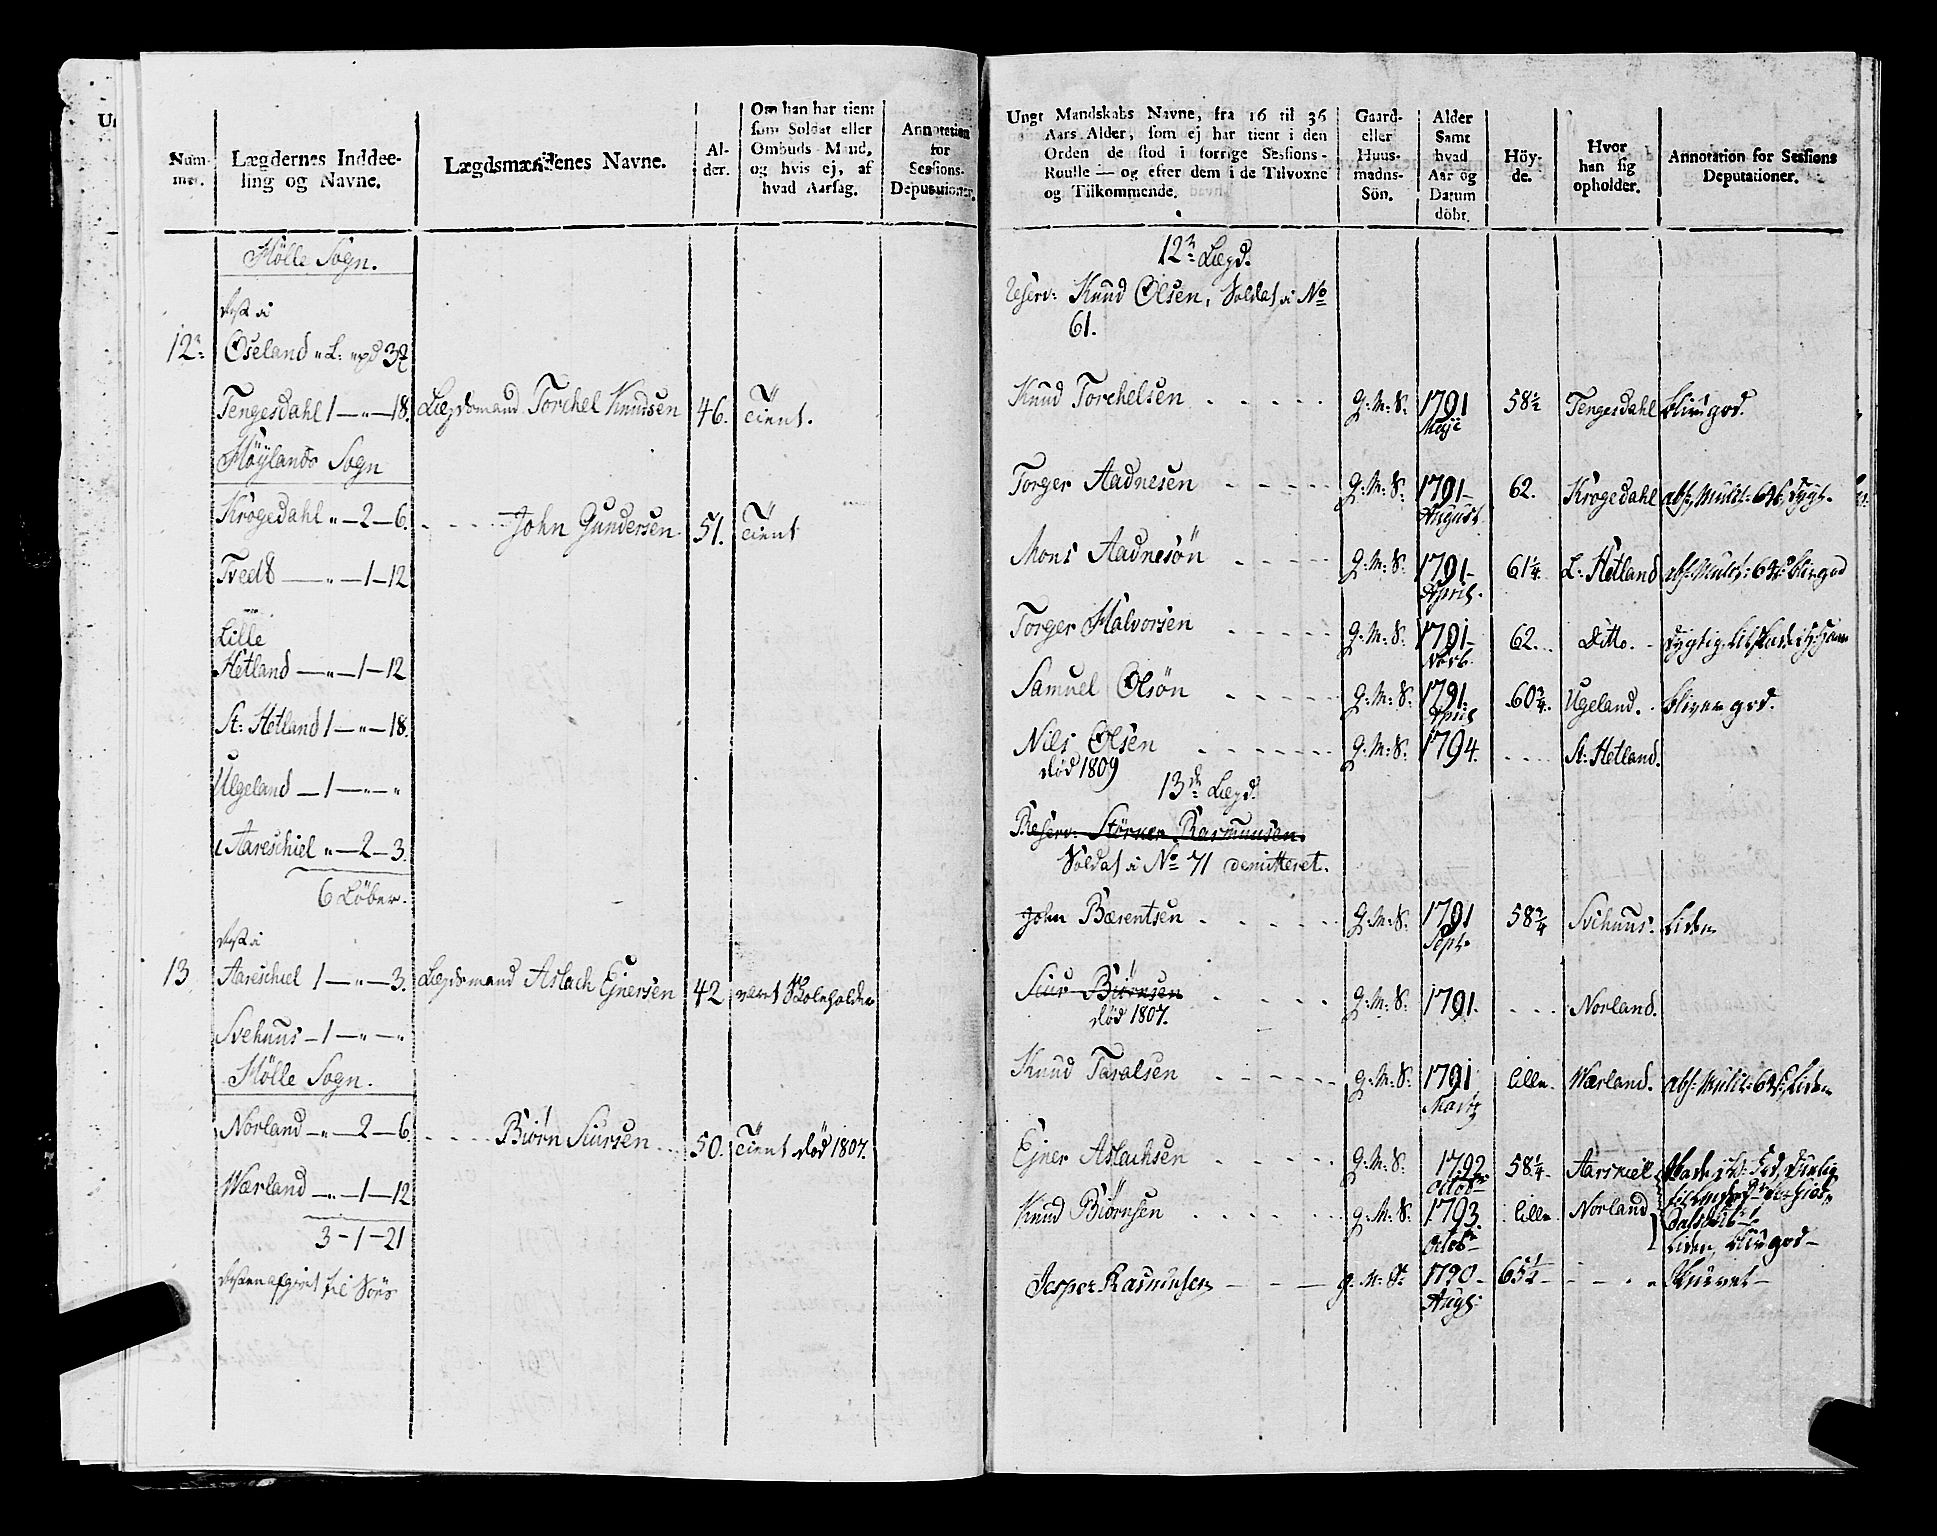 Num-
mer.
Lægdernes Inddee-
ling og Navne.
Lægdsmændenes Navne.
Al-
der.
Om han har tient
som Soldat eller
Ombuds Mand,
og hvis ej, af
hvad Aarsag.
Annotation
for
Sessions-
Deputationer.
Hølle Sogn.
12te
Øseland
Tengesdahl 1 — " — 18.
Lægdsmand Torchel Knudsen 46. Tient.
Høylands Sogn
Krogedahl " — 2 — 6.
John Gundersen 51. Tient
Tvedt — " — 1 — 12
Lille
Hetland — " — 1 — 12
St: Hetland 1 — " — 18.
Ulgeland — 1 — " — "
Aareschiel " — 2 — 3.
6 Løber.
13 Aareschiel 1 — " — 3. Lægdsmand Aslach Ejnersen 42 været
Svehuus — 1 — " — "
Hølle Sogn.
Norland — " — 2 — 6. Biørn Siursen 50. Tient død 1807.
Wærland — " — 1 — 12
3 — 1 — 21
Ungt Mandskabs Navne, fra 16 til 36
Aars Alder, som ej har tient i den
Orden de stod i forrige Sessions-
Roulle — og efter dem i de Tilvoxne
og Tilkommende.
Gaard-
eller
Huus-
mands-
Sön.
Alder
Samt
hvad
Aar og
Datum
döbt.
Höy-
de.
Hvor
han sig
opholder.
Annotation for Sessions
Deputationer.
12te Lægd.
Reserv: Knud Olsen, Soldat i No
61.
Knud Torchelsen G: M: S. 1791 58½ Tengesdahl bliver god.
Maji
Torger Aadnesen G: M: S. 1791 62. Krogedahl
August
Mons Aadnesøn G: M: S. 1791 61¼ L: Hetland
April
Torger Halvorsen G: M: S. 1791 62. Ditto.
Novb.
Samuel Olsøn G: M: S. 1791. 60¾ Ugeland. bliver god.
April
Nils Olsen G: M: S. 1794. St: Hetland.
død 1809
13de Lægd.
Reserv: Størker Rasmussen.
Soldat i No 71 demitteret.
John Bærentsen G: M: S. 1791 58¾ Svehuus. Liden
Sept.
Siur Biørnsen G: M: S. 1791. Norland.
død 1807.
Knud Taralsen G: M: S. 1791 lille. Wærland.
Ejner Aslachsen G: M: S. 1792 58¼ Aarskiel
Octob
Knud Biørnsen G: M: S. 1793. lille Norland
Octob
Liden, bliver god
Jesper Rasmusen G: M: S. 1790 65½
Aug: